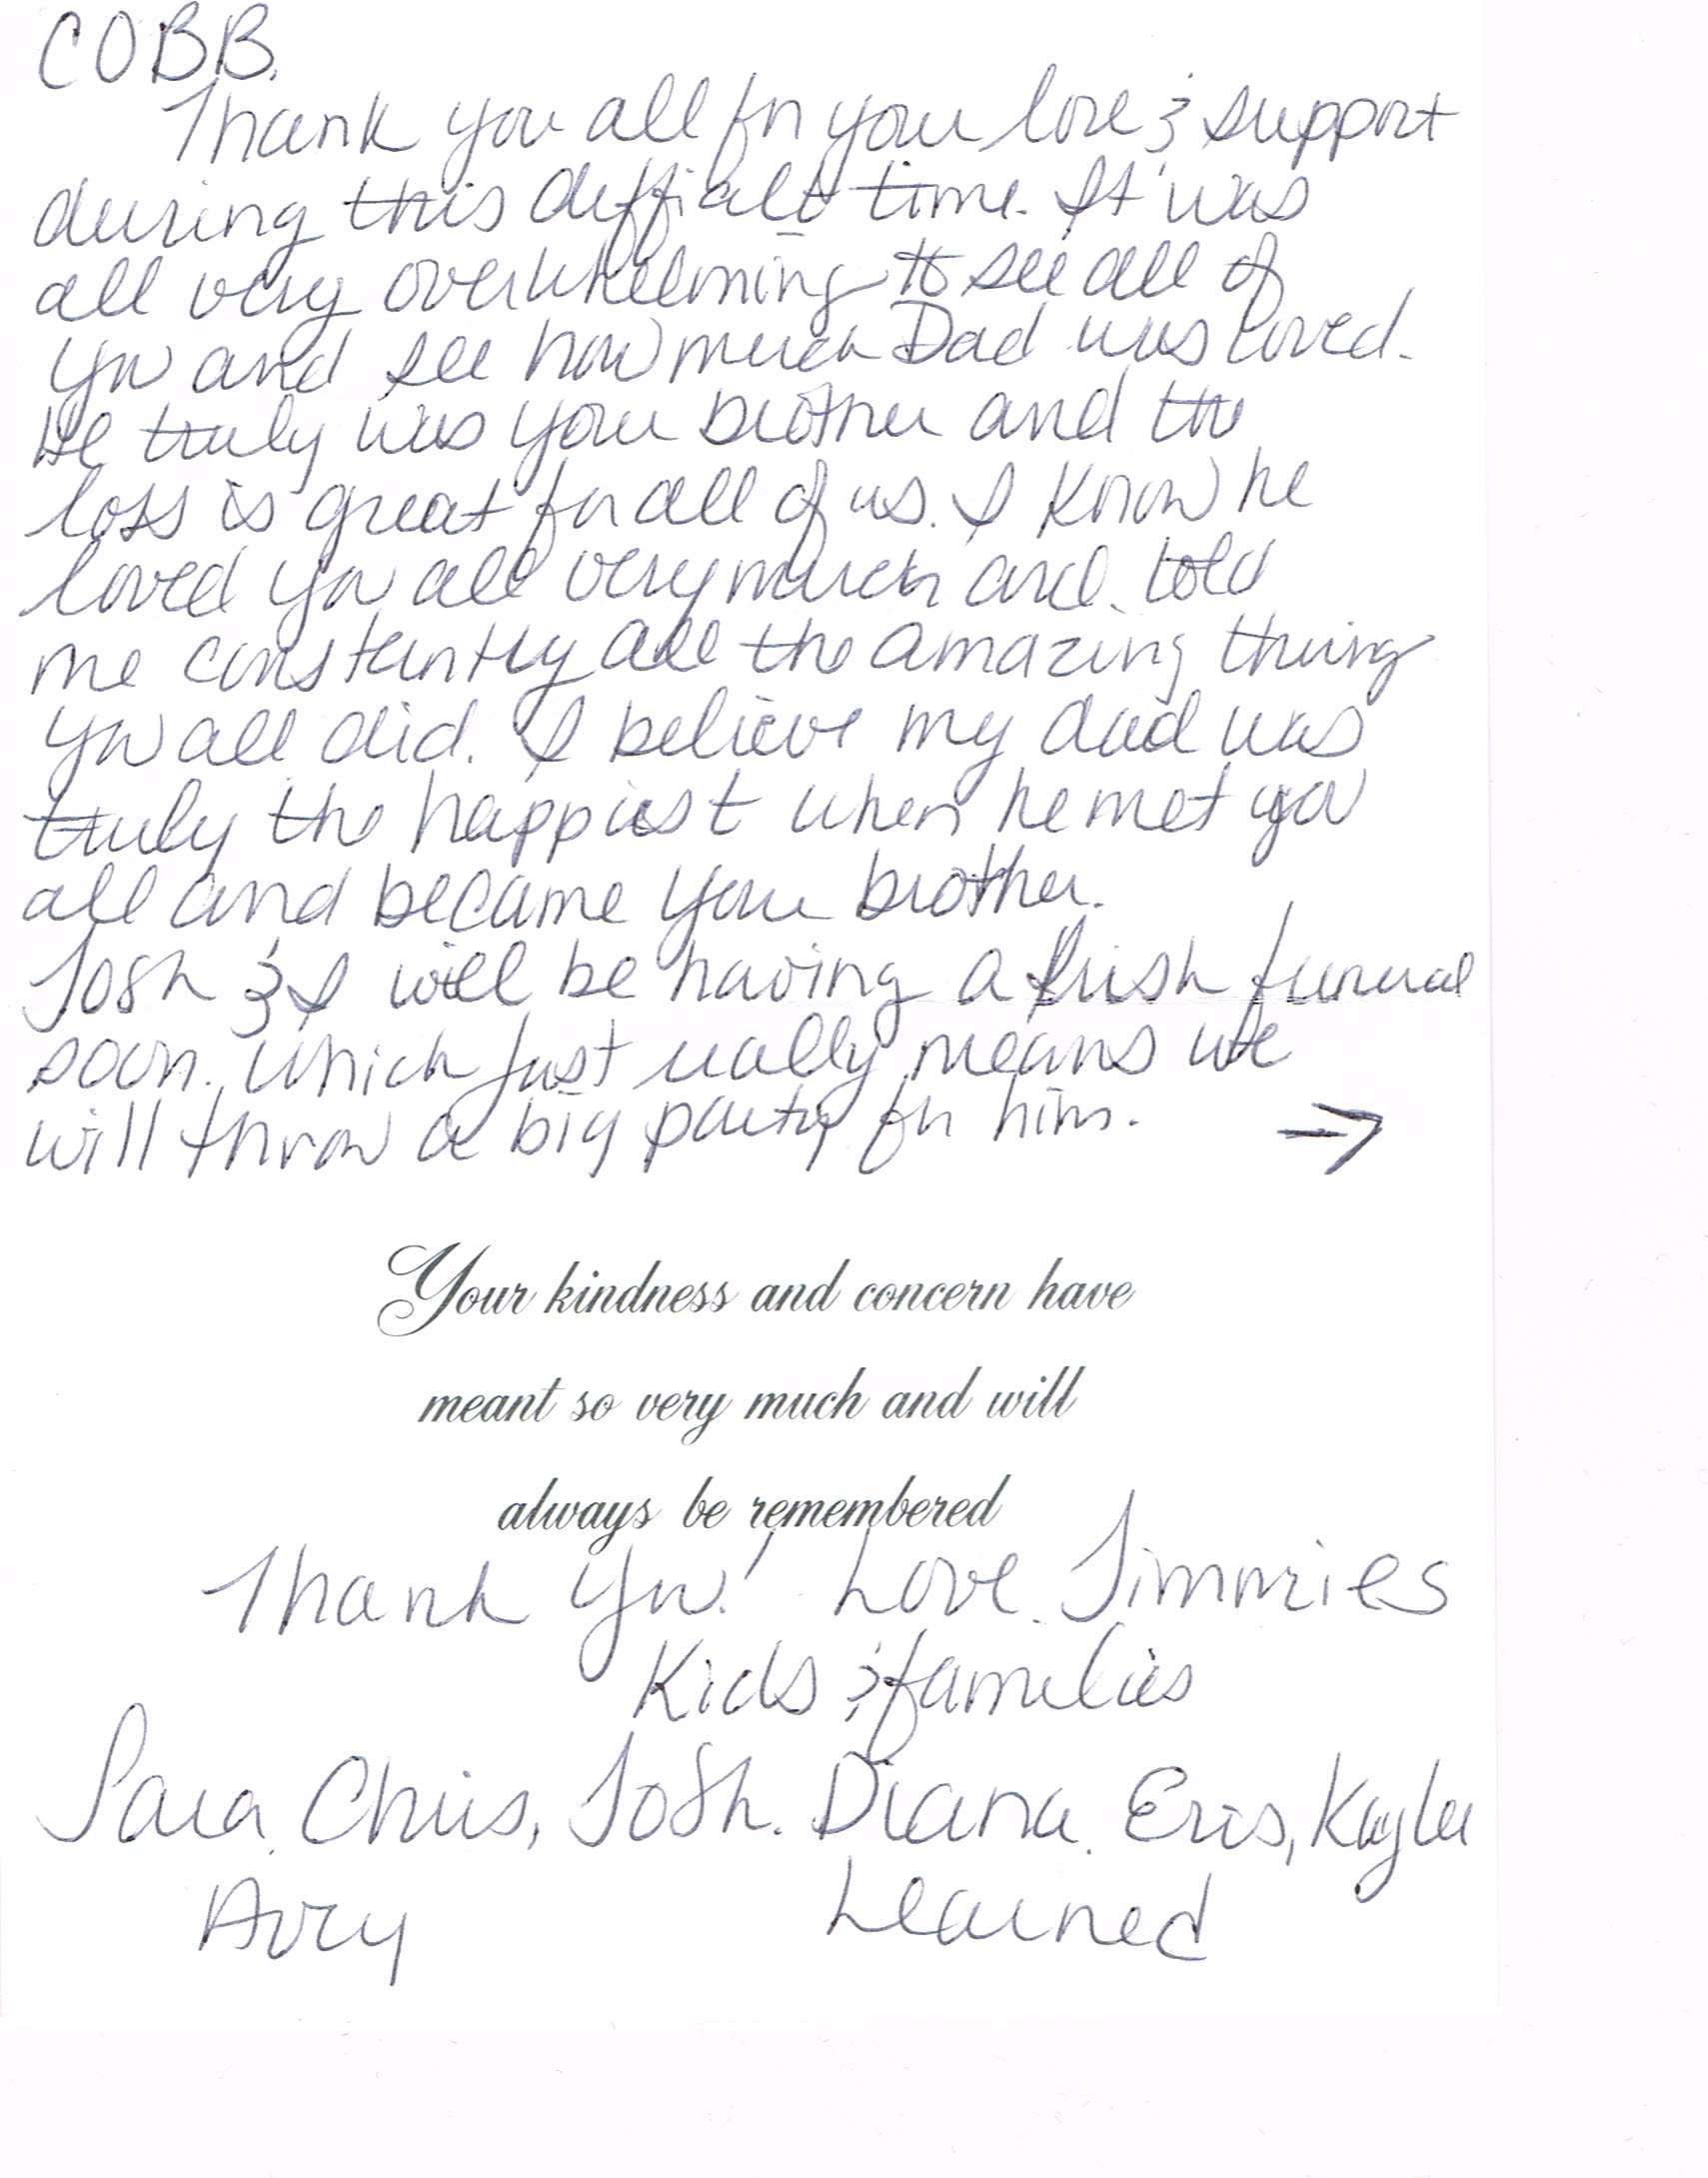 COBB,
Thank you all for your love & support
during this difficult time. It was
all very overwhelming to see all of
you and see how much Dad was loved.
He truly was your brother and the
loss is great for all of us. I know he
loved you all very much and told
me constantly all the amazing thing
you all did. I believe my dad was
truly the happiest when he met you
all and became your brother.
Josh & I will be having a Irish funeral
soon. Which just really means we
will throw a big party for him. →
Your kindness and concern have
meant so very much and will
always be remembered
Thank you! Love, Jimmies
Kids & families
Sara, Chris, Josh, Diana, Eris, Kaylee
Avry Learned